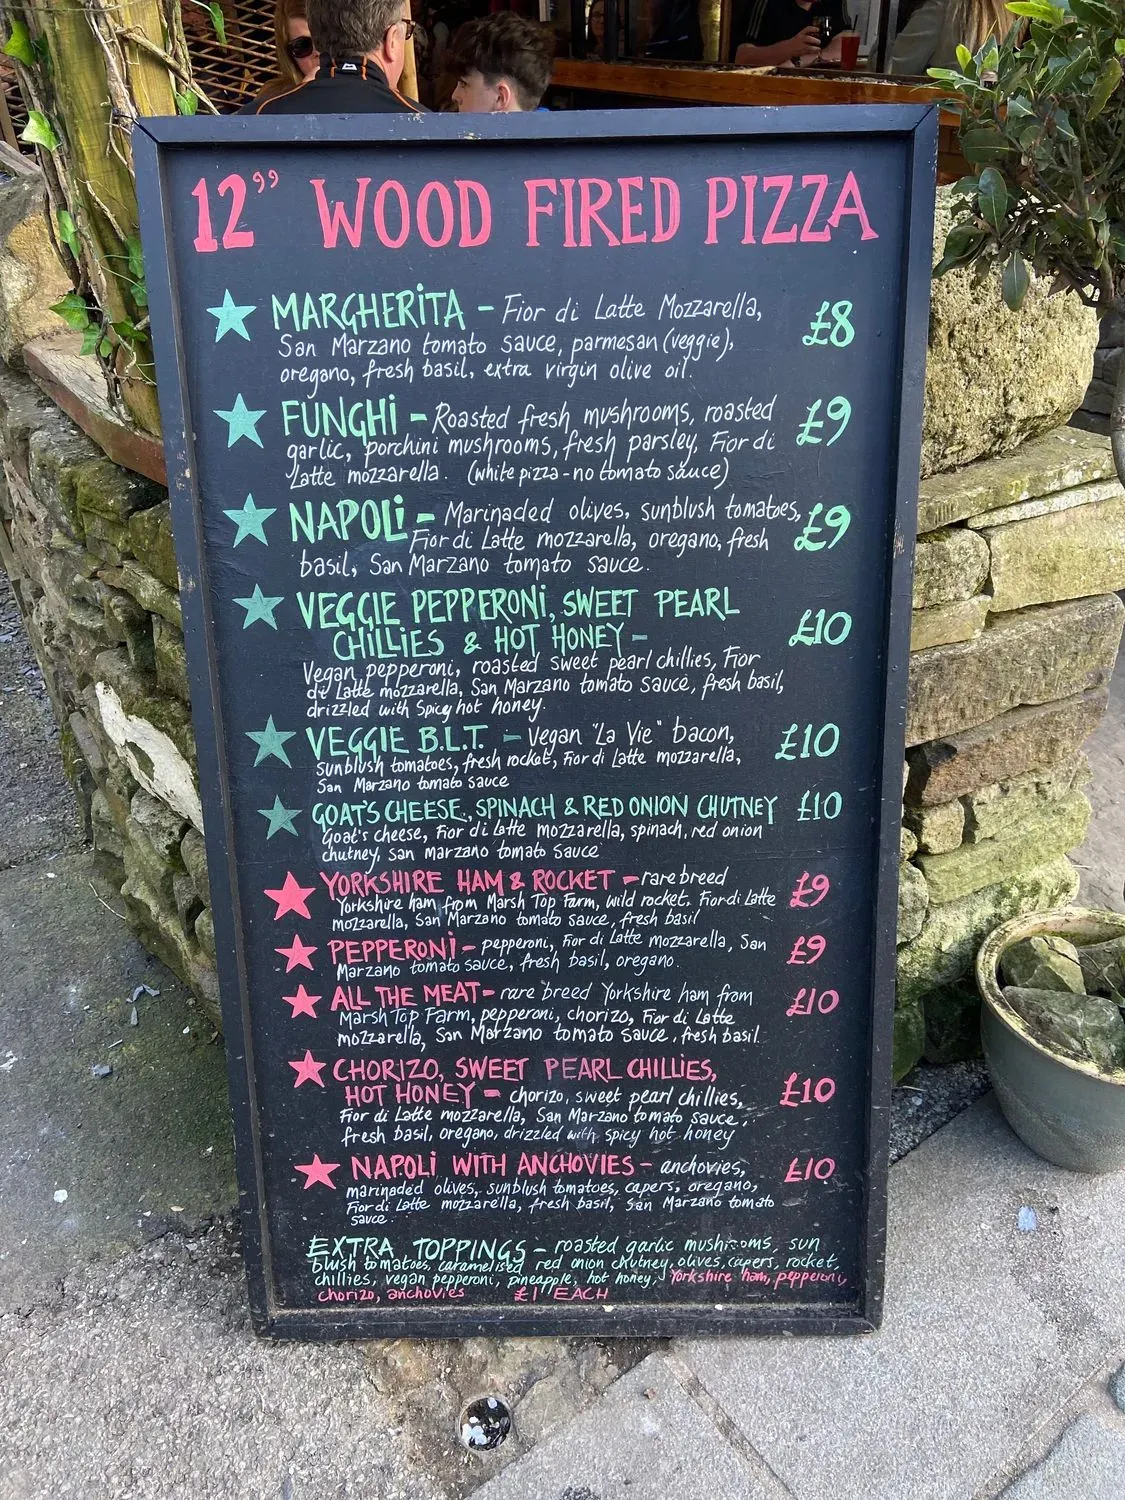 12” WOOD FIRED PIZZA
MARGHERITA - Fior di Latte Mozzarella, £8
San Marzano tomato sauce, parmesan (veggie),
oregano, fresh basil, extra virgin olive oil.
FUNGHI - Roasted fresh mushrooms, roasted £9
garlic, porchini mushrooms, fresh parsley, Fior di
Latte mozzarella. (white pizza - no tomato sauce)
NAPOLI - Marinaded olives, sunblush tomatoes, £9
Fior di Latte mozzarella, oregano, fresh
basil, San Marzano tomato sauce.
VEGGIE PEPPERONI, SWEET PEARL
CHILLIES & HOT HONEY - £10
Vegan pepperoni, roasted sweet pearl chillies, Fior
di Latte mozzarella, San Marzano tomato sauce, fresh basil,
drizzled with spicy hot honey.
VEGGIE B.L.T. - Vegan "La Vie" bacon, £10
sunblush tomatoes, fresh rocket, Fior di Latte mozzarella,
San Marzano tomato sauce
GOAT'S CHEESE, SPINACH & RED ONION CHUTNEY £10
Goat's cheese, Fior di Latte mozzarella, spinach, red onion
chutney, San Marzano tomato sauce
YORKSHIRE HAM & ROCKET - rare breed £9
Yorkshire ham from Marsh Top Farm, wild rocket, Fior di Latte
mozzarella, San Marzano tomato sauce, fresh basil
PEPPERONI - pepperoni, Fior di Latte mozzarella, San £9
Marzano tomato sauce, fresh basil, oregano.
ALL THE MEAT - rare breed Yorkshire ham from £10
Marsh Top Farm, pepperoni, chorizo, Fior di Latte
mozzarella, San Marzano tomato sauce, fresh basil.
CHORIZO, SWEET PEARL CHILLIES,
HOT HONEY - chorizo, sweet pearl chillies, £10
Fior di Latte mozzarella, San Marzano tomato sauce,
fresh basil, oregano, drizzled with spicy hot honey
NAPOLI WITH ANCHOVIES - anchovies, £10
marinaded olives, sunblush tomatoes, capers, oregano,
Fior di Latte mozzarella, fresh basil, San Marzano tomato
sauce.
EXTRA TOPPINGS - roasted garlic mushrooms, sun
blush tomatoes, caramelised red onion chutney, olives, capers, rocket,
chillies, vegan pepperoni, pineapple, hot honey, Yorkshire ham, pepperoni,
chorizo, anchovies £1 EACH